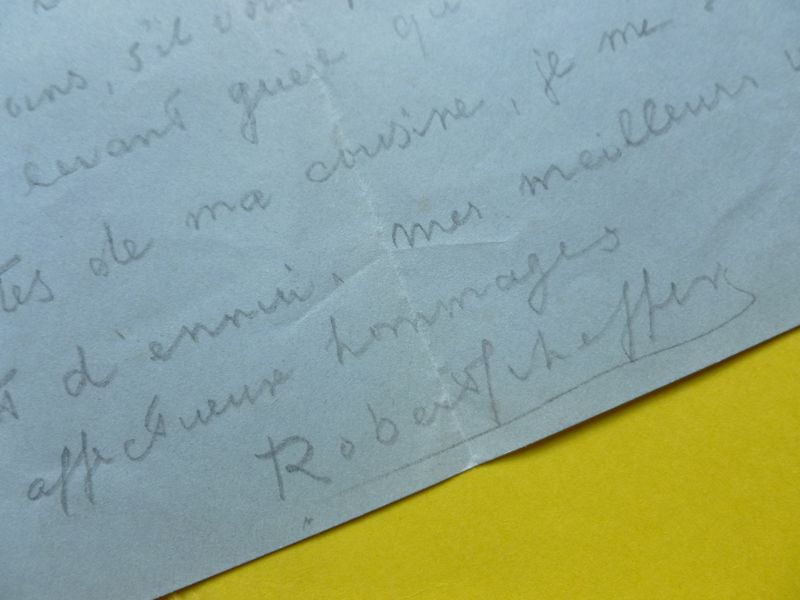 oins, s'il vous
levant guère qu
tes de ma cousine, je me
t d'ennui, mes meilleurs
affectueux hommages
Robert Scheffer